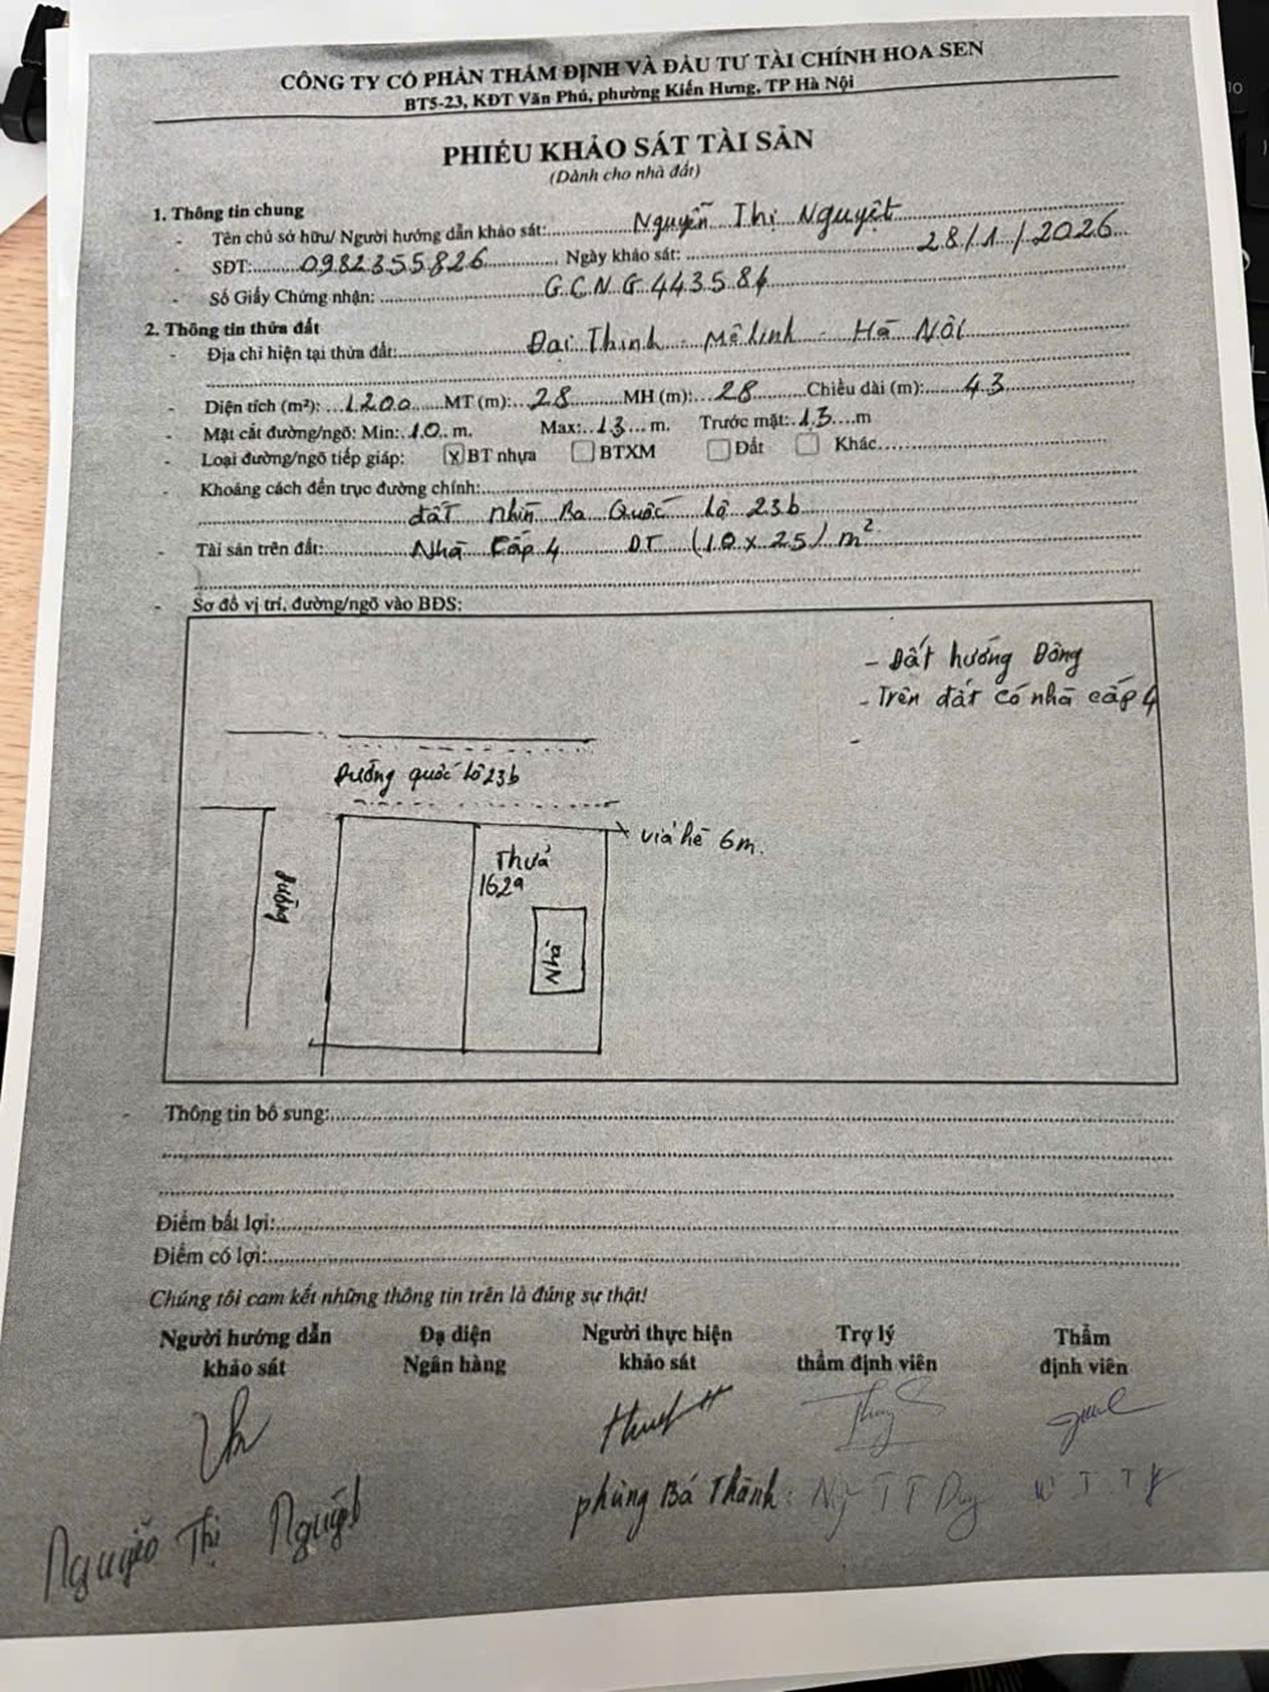 CÔNG TY CỔ PHẦN THẨM ĐỊNH VÀ ĐẦU TƯ TÀI CHÍNH HOA SEN
BT5-23, KĐT Văn Phú, phường Kiến Hưng, TP Hà Nội
PHIẾU KHẢO SÁT TÀI SẢN
(Dành cho nhà đất)
1. Thông tin chung
- Tên chủ sở hữu/ Người hướng dẫn khảo sát: Nguyễn Thị Nguyệt
- SĐT: 0982355826 Ngày khảo sát: 28/1/2026
- Số Giấy Chứng nhận: GCN G 443584
2. Thông tin thửa đất
- Địa chỉ hiện tại thửa đất: Đại Thịnh - Mê Linh - Hà Nội
- Diện tích (m²): 1200 MT (m): 28 MH (m): 28 Chiều dài (m): 43
- Mặt cắt đường/ngõ: Min: 10 m. Max: 13 m. Trước mặt: 13 m
- Loại đường/ngõ tiếp giáp: x BT nhựa BTXM Đất Khác
- Khoảng cách đến trục đường chính:
đất nhìn Ra Quốc lộ 23b
- Tài sản trên đất: Nhà Cấp 4 DT (10 x 25) m²
- Sơ đồ vị trí, đường/ngõ vào BĐS:
- Đất hướng Đông
- Trên đất có nhà cấp 4
-
Đường quốc lộ 23b
vỉa hè 6m.
Thửa
162a
Đường
Nhà
- Thông tin bổ sung:
Điểm bất lợi:
Điểm có lợi:
Chúng tôi cam kết những thông tin trên là đúng sự thật!
Người hướng dẫn khảo sát
Đạ diện Ngân hàng
Người thực hiện khảo sát
Trợ lý thẩm định viên
Thẩm định viên
Phùng Bá Thành
Nguyễn Thị Nguyệt